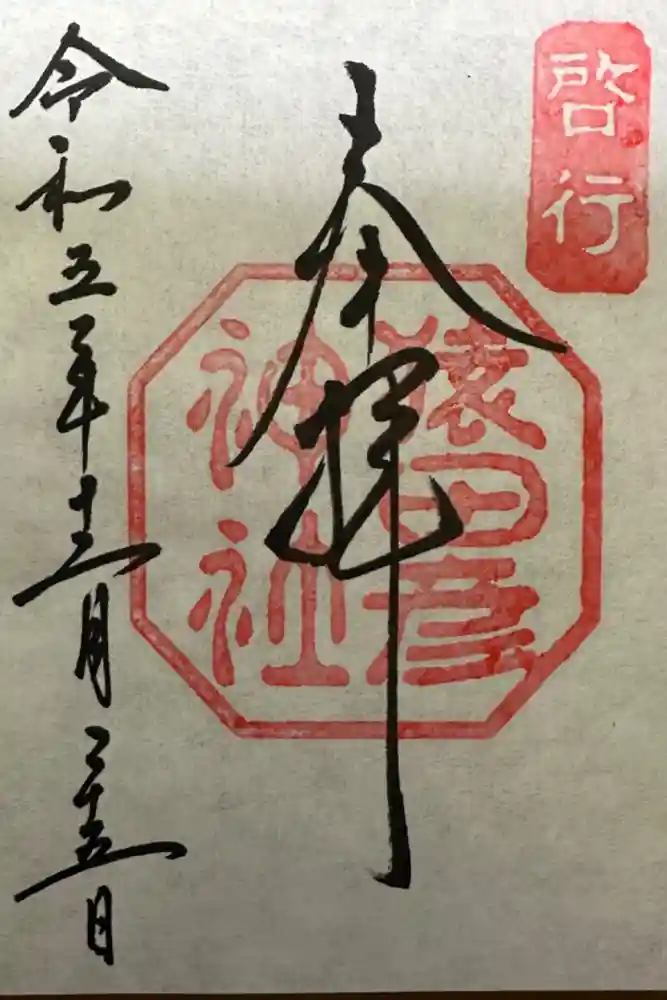 啓行
奉拝
猿田彦
神社
令和五年十二月二十五日